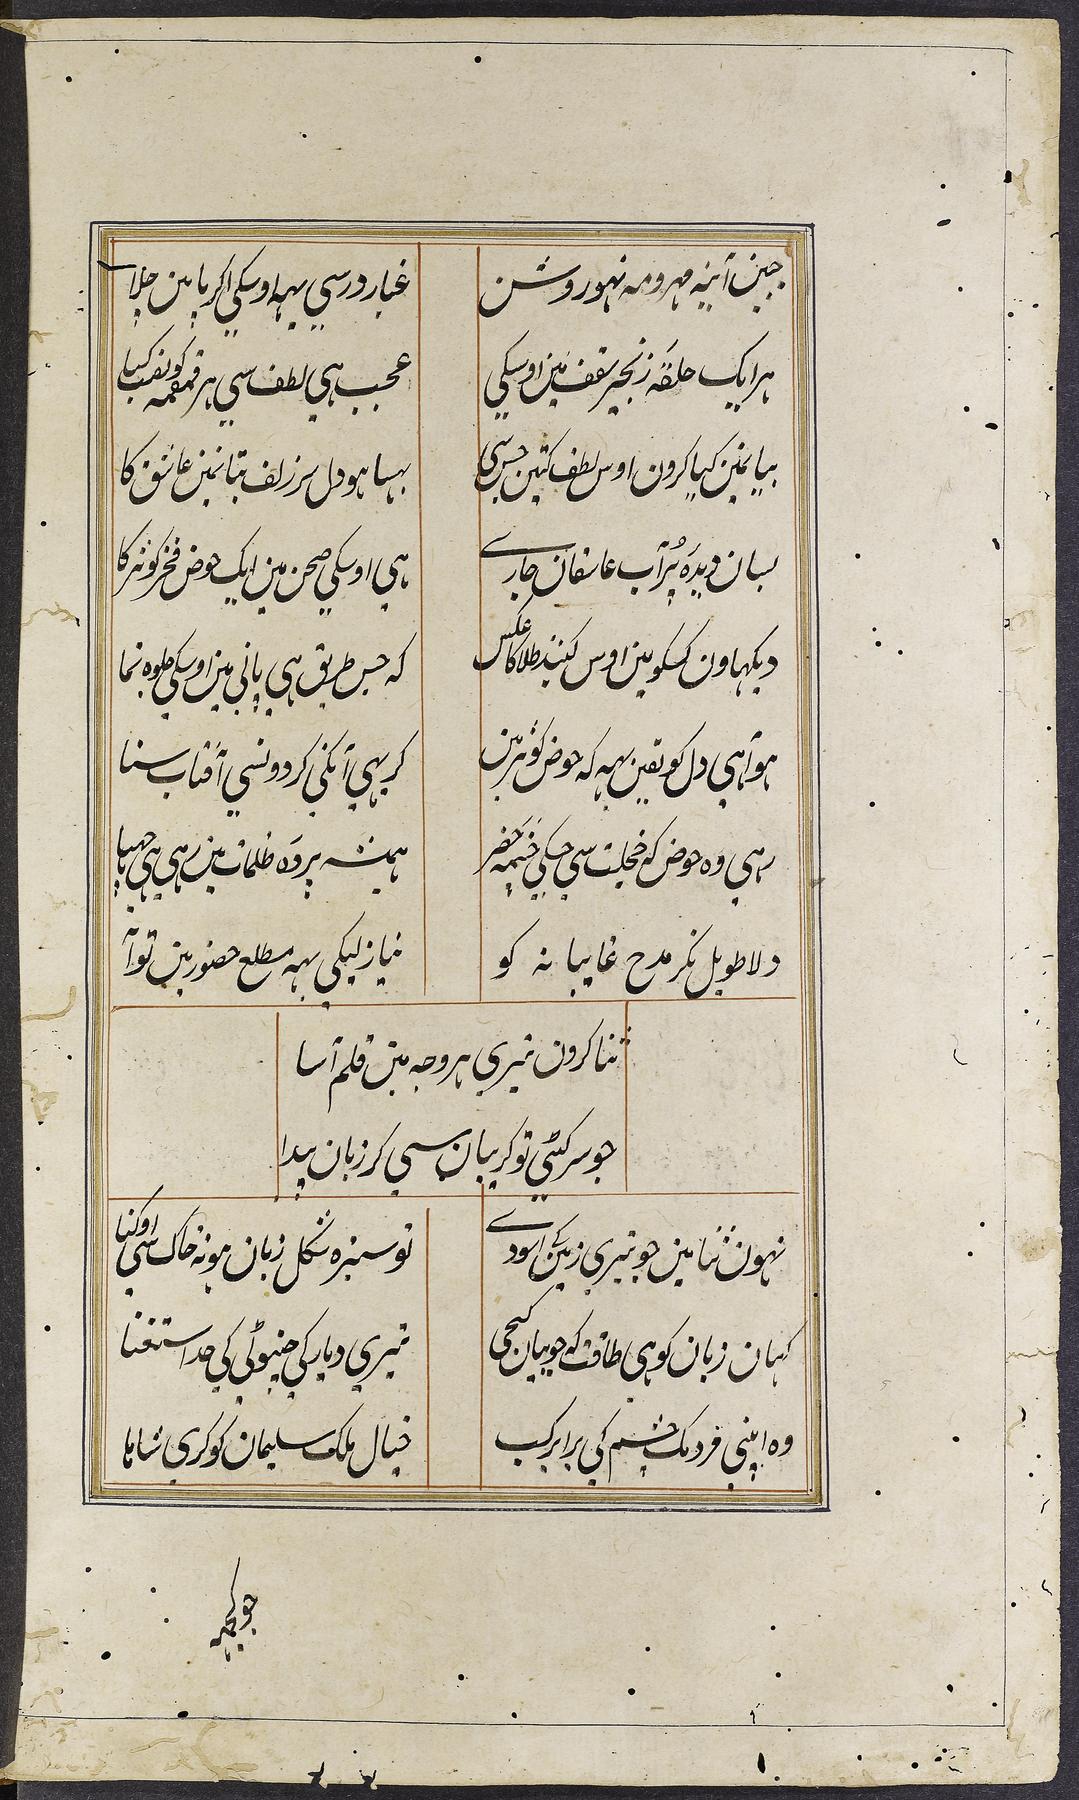 جبین آئینه مهر و مه نهو روشن
غبار در سی یهه اوسکی اگر پا مین جلا
هر ایک حلقهٔ زنجیر سقف مین اوسکی
عجب هی لطف سی هر قمقمه کو نصب کیا
بیا نمین کیا کرون اوس لطف کتین جس سی
پهسا هو دل سر زلف بتا نمین عاشق کا
بسان دیدهٔ پُر آب عاشقان جاری
هی اوسکی صحن مین ایک حوض فخر کوثر کا
دیکهاون کسکو مین اوس گنبد طلا کا عکس
که جس طریق هی پانی مین اوسکی جلوه نما
هوا هی دل کو یقین یهه که حوض کوثر مین
کر یهی آنکی گردونسی آفتاب سنا
رهی وه حوض که خجلت سی جسکی چشمه خضر
همیشه پردهٔ ظلمات مین رهی هی چهپا
دلا طویل نکر مدح غایبا نه کو
نیاز لیکی یهه مطلع حضور مین تو آ
ثنا کرون تیری هر وجه مین قلم آسا
جو سر کٹی تو گریبان سی کر زبان پیدا
نهون ثنا مین جو تیری زمین کی اسودی
تو سبزه شکل زبان مونه خاک سی اوکتا
کهان زبان کو هی طاقت که جو بیان کیجی
تیری دیار کی چنیوٹی کی حد استغنا
وه اپنی مردمک چشم کی برابر کب
خیال ملک سلیمان کو کری شاها
جو کچهه